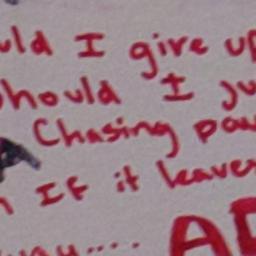 uld I give up
hould I ju
Chasing pav
n If it leaves
.... AD